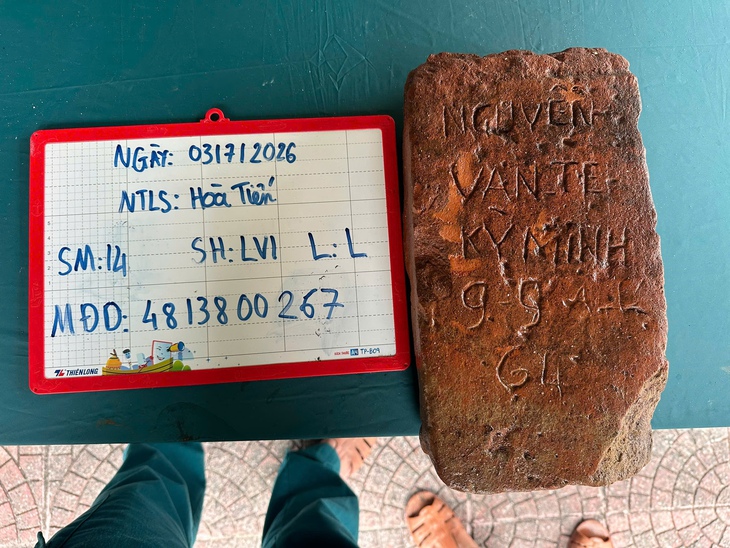 NGÀY: 03/7/2026
NTLS: Hoà Tiến
SM: 14 SH: LVI L: L
MĐD: 4813800267
THIÊN LONG
A4 TP-B09
NGUYỄN
VAN TE
KỲ MINH
9-9 A-L
64